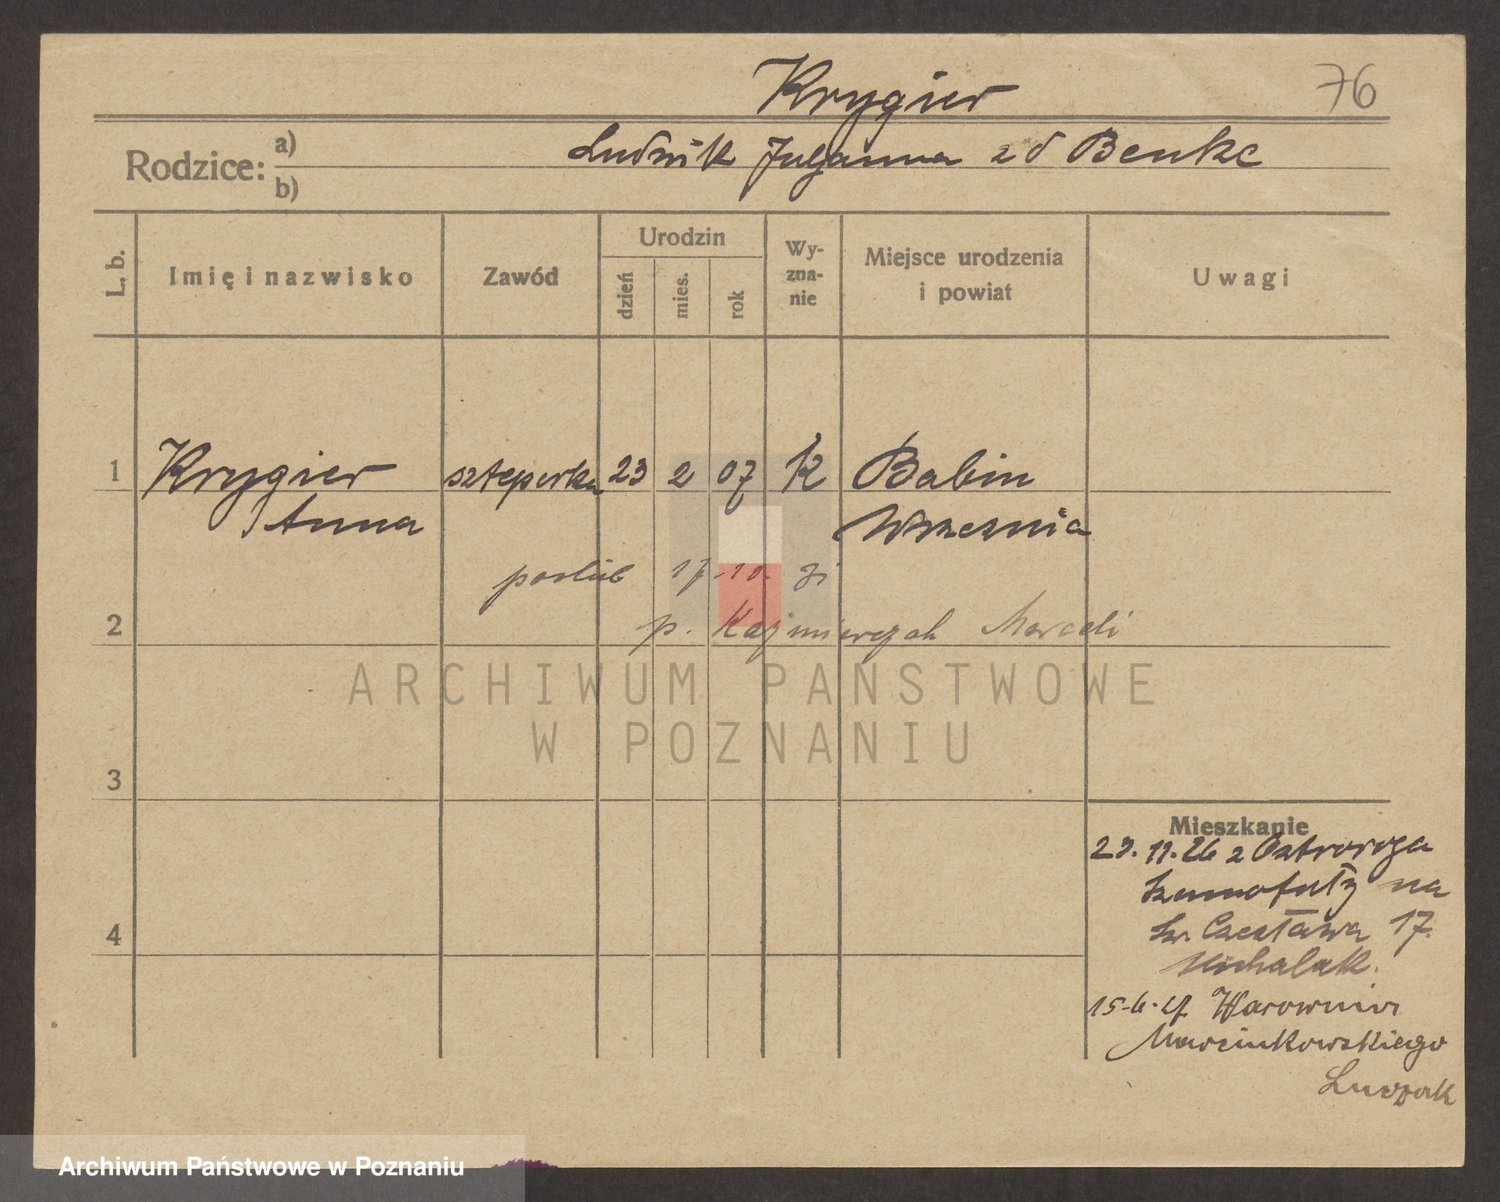 Krygier
76
Rodzice: a) Ludwik Julianna zd Benke
b)
L. b.
Imię i nazwisko
Zawód
Urodzin
dzień
mies.
rok
Wy-
zna-
nie
Miejsce urodzenia
i powiat
Uwagi
1 Krygier szteperka 23 2 07 K Babin
Anna Wrzesnia
poślub 17.10.31
2 p. Kaźmierczak Marceli
ARCHIWUM PAŃSTWOWE
W POZNANIU
3
Mieszkanie
23.11.26 z Ostroroga
Szamotuły na
4 św. Czesława 17
Michalak.
15.6.27
Marcinkowskiego
Archiwum Państwowe w Poznaniu